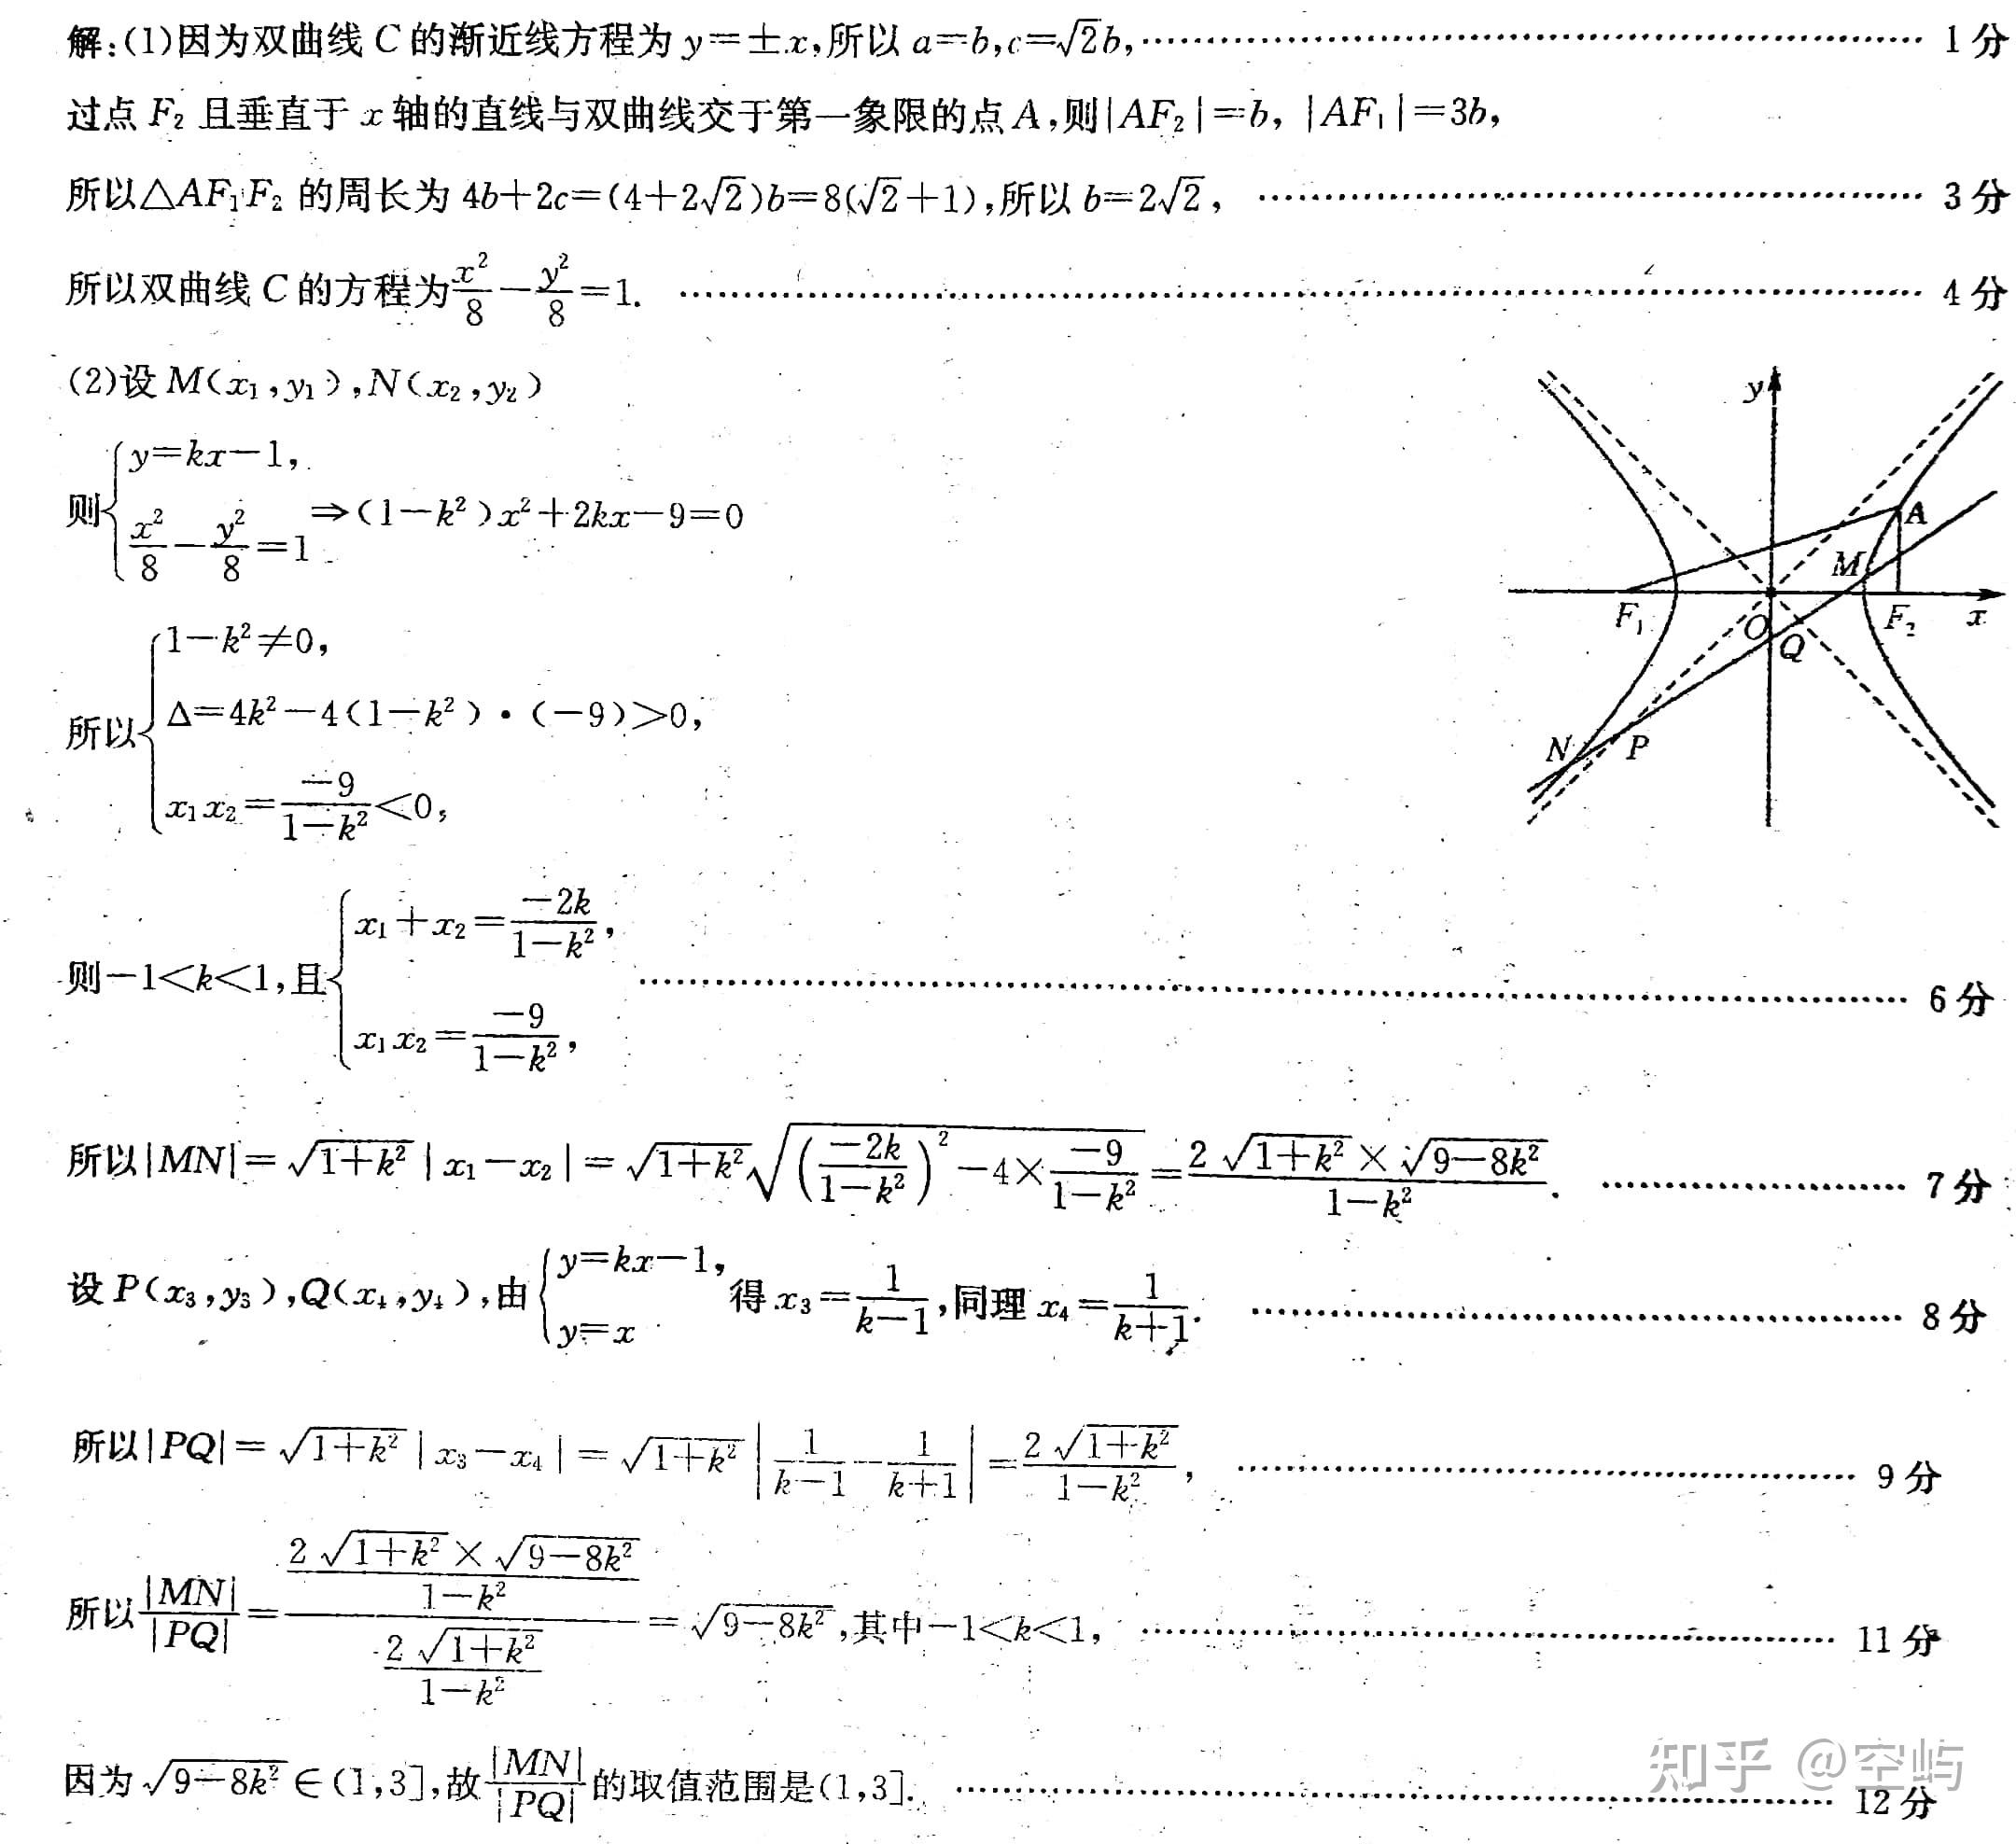 解:(1)因为双曲线 C 的渐近线方程为 y=±x,所以 a=b,c=√2b, ………… 1 分
过点 F₂ 且垂直于 x 轴的直线与双曲线交于第一象限的点 A,则|AF₂|=b, |AF₁|=3b,
所以△AF₁F₂ 的周长为 4b+2c=(4+2√2)b=8(√2+1),所以 b=2√2, ………… 3 分
所以双曲线 C 的方程为x²/8−y²/8=1. ………… 4 分
(2)设 M(x₁,y₁),N(x₂,y₂)
则{y=kx−1, x²/8−y²/8=1 ⇒(1−k²)x²+2kx−9=0
所以{1−k²≠0, Δ=4k²−4(1−k²)·(−9)>0, x₁x₂=−9/(1−k²)<0,
则−1<k<1,且{x₁+x₂=−2k/(1−k²), x₁x₂=−9/(1−k²), ………… 6 分
所以|MN|=√(1+k²)|x₁−x₂|=√(1+k²)√((−2k/(1−k²))²−4×−9/(1−k²))=2√(1+k²)×√(9−8k²)/(1−k²). ………… 7 分
设 P(x₃,y₃),Q(x₄,y₄),由{y=kx−1, y=x 得 x₃=1/(k−1),同理 x₄=1/(k+1). ………… 8 分
所以|PQ|=√(1+k²)|x₃−x₄|=√(1+k²)|1/(k−1)−1/(k+1)|=2√(1+k²)/(1−k²), ………… 9 分
所以|MN|/|PQ|=(2√(1+k²)×√(9−8k²)/(1−k²))/(2√(1+k²)/(1−k²))=√(9−8k²),其中−1<k<1, ………… 11 分
因为√(9−8k²)∈(1,3],故|MN|/|PQ|的取值范围是(1,3]. ………… 12 分
y
A
M
F₁
O
Q
F₂
x
N
P
知乎 @空屿